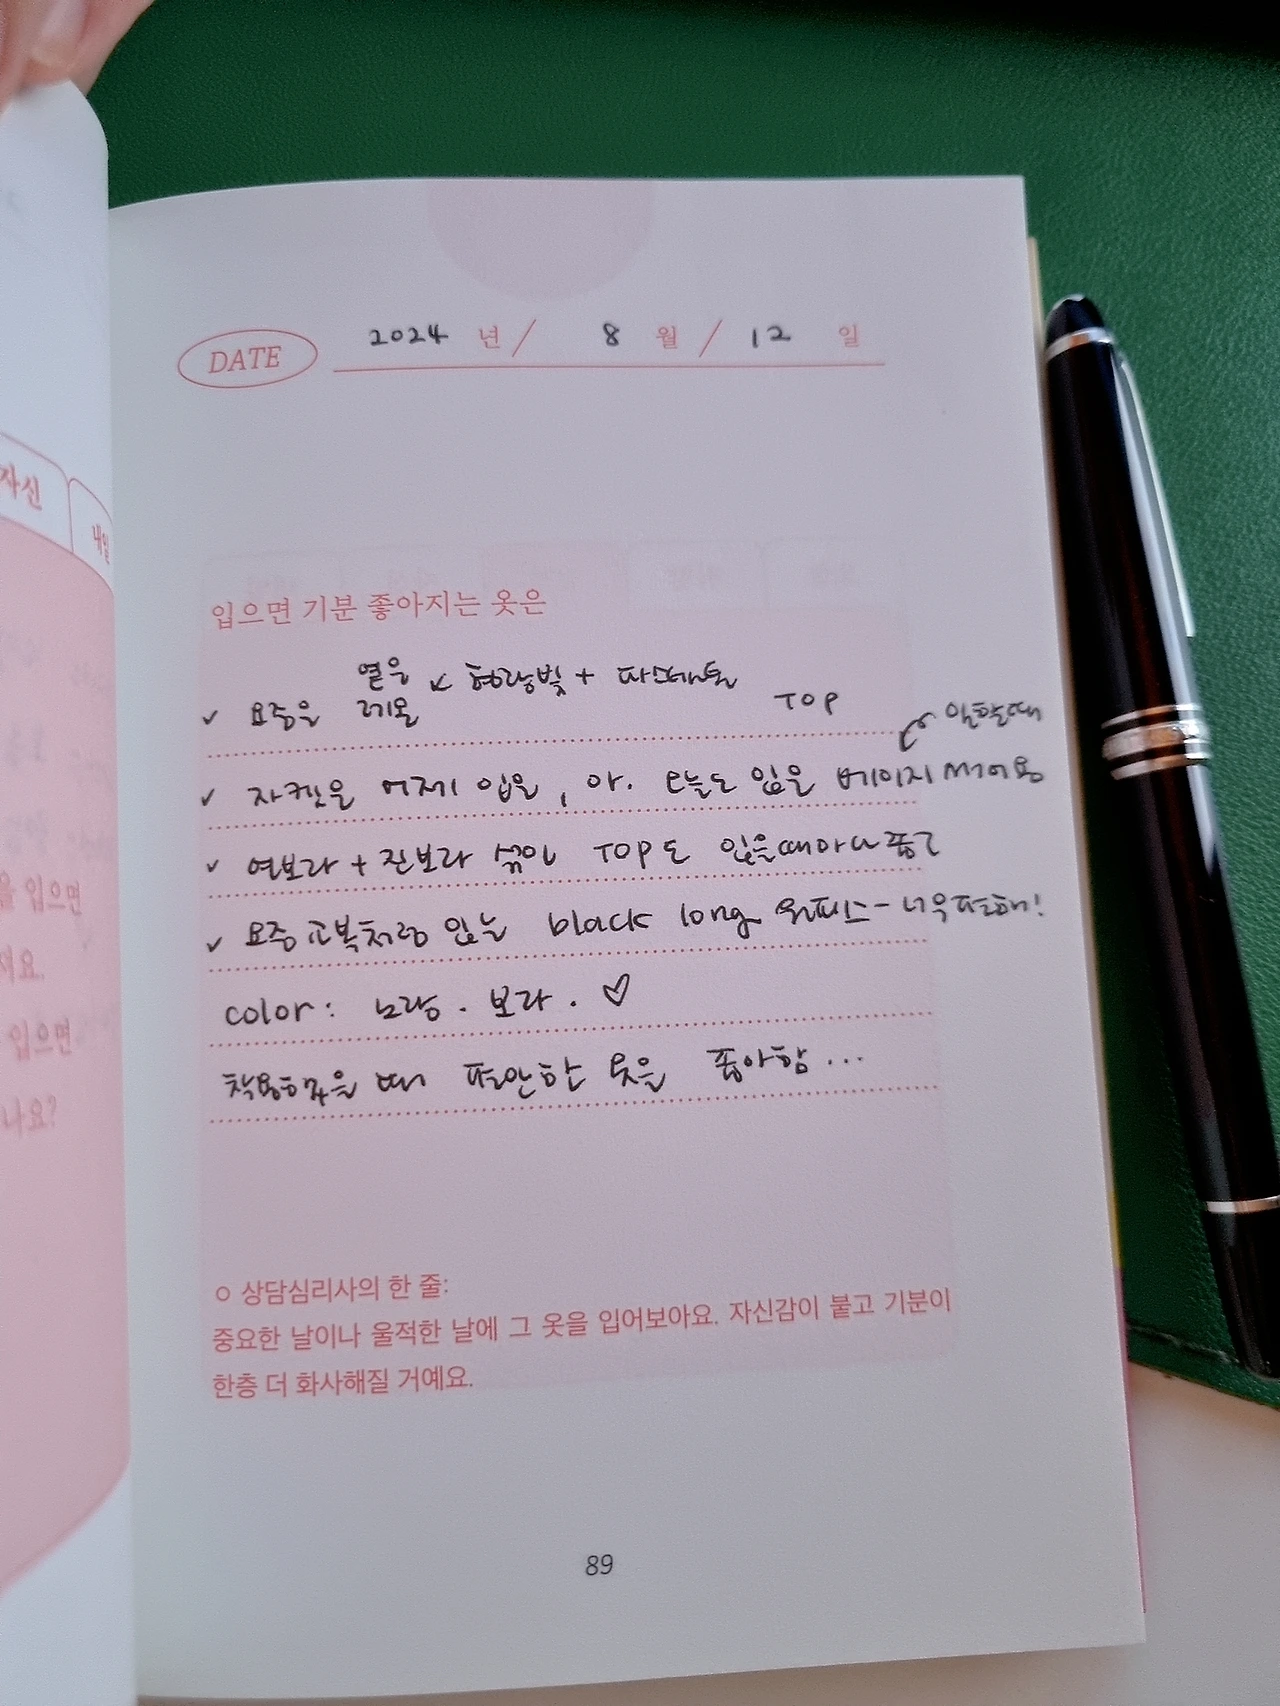 자신
내일
을 입으면
재요.
입으면
나요?
DATE 2024 년 / 8 월 / 12 일
입으면 기분 좋아지는 옷은
옅은 ↙ 형광빛 + 파스텔톤
✓ 요즘은 레몬 TOP
일할때
✓ 자켓은 어제 입은, 아. 오늘도 입은 베이지
✓ 연보라 + 진보라 섞인 TOP도 입을때마다 좋고
✓ 요즘 교복처럼 입는 black long 원피스 - 너무 편해!
color : 노랑 . 보라 . ♡
착용했을 때 편안한 옷을 좋아함 ...
○ 상담심리사의 한 줄:
중요한 날이나 울적한 날에 그 옷을 입어보아요. 자신감이 붙고 기분이
한층 더 화사해질 거예요.
89